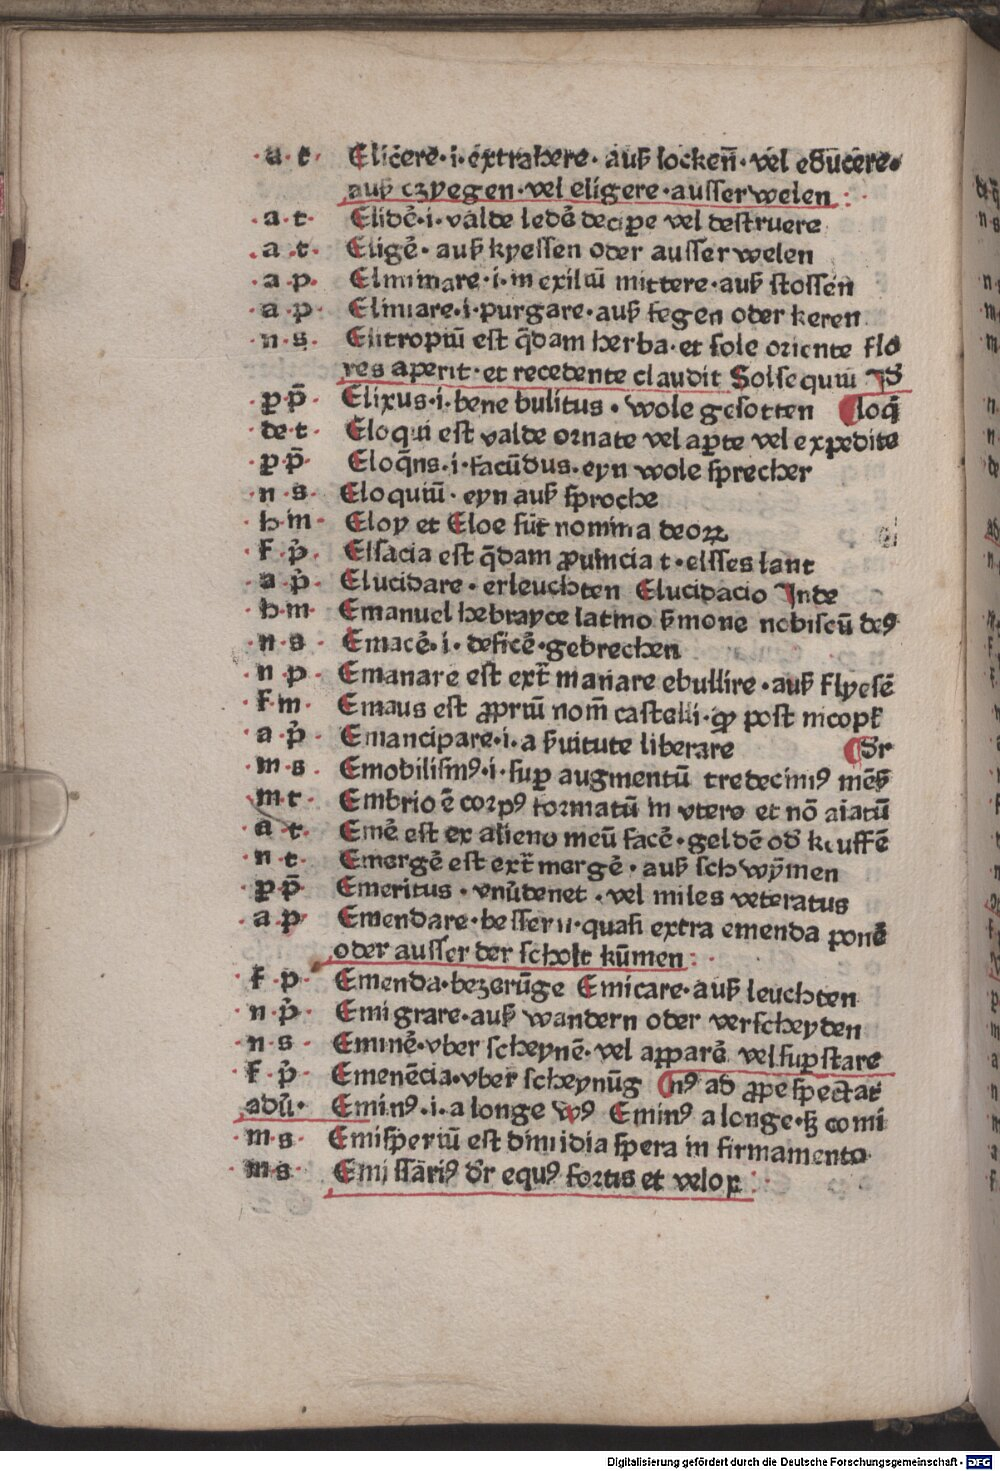 ·a·t· Elicēre·i·extrahere·auß locken̄·vel edūcēre·
auß czyegen·vel eligere·ausser welen :
·a·t· Elidē·i·valde ledē decipe vel destruere
·a·t· Eligē·auß kyessen oder ausser welen
·a·p· Eliminare·i·in exiliū mittere·auß stossen
·a·p· Elimare·i·purgare·auß fegen oder keren
·n·s· Elitropiū est q̄dam herba·et sole oriente flo
res aperit·et recedente claudit Solsequiū
·p·p̄· Elixus·i·bene bulitus·wole gesotten loq̄
·de·t· Eloqui est valde ornate vel aꝑte vel expedite
·p·p̄· Eloq̄ns·i·facūdus·eyn wole sprecher
·n·s· Eloquiū·eyn auß sproche
·h·m· Eloy et Eloe sūt nomina deoꝝ
·f·p̓· Elsacia est q̄dam ꝓuincia t·elsses lant
·a·p̓· Elucidare·erleuchten Elucidacio Inde
·h·m· Emanuel hebrayce latino ẜmone nobiscū deꝰ
·n·s· Emacē·i·deficē·gebrechen
·n·p· Emanare est ext̄ manare ebullire·auß flyesē
·f·m· Emaus est ꝓpriū nom̄ castelli·ꝙ post nicopł
·a·p̓· Emancipare·i·a ẜuitute liberare dr̄
·m·s· Emobilismꝰ·i·suꝑ augmentū tredecimꝰ mēß
·m·t· Embrio ē corpꝰ formatū in vtero et nō aīatū
·a·t· Emē est ex alieno meū facē·geldē od̓ kauffē
·n·t· Emergē est ext̄ mergē·auß schwȳmen
·p·p̄· Emeritus·vnūdenet·vel miles veteratus
·a·p· Emendare·bessern·quasi extra emenda ponē
oder ausser der scholt kūmen :
·f·p· Emenda·bezerūge Emicare·auß leuchten
·n·p̓· Emigrare·auß wandern oder verscheyden
·n·s· Eminē·vber scheynē·vel apparē vel suꝑstare
·f·p̓· Eminēcia·vber scheynūg nꝰ ad ꝓpe spectat
adū· Eminꝰ·i·a longe Eminꝰ a longe·ꝫ comi
·m·s· Emisperiū est dimidia spera in firmamento
·m·s· Emissāriꝰ dr̄ equꝰ fortis et velox :
Digitalisierung gefördert durch die Deutsche Forschungsgemeinschaft - DFG